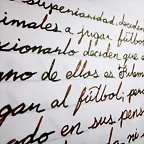 superioridad, deciden
imales a jugar fútbol
cionarlo deciden que a
uno de ellos es
gan al fútbol; per
odo en sus pens